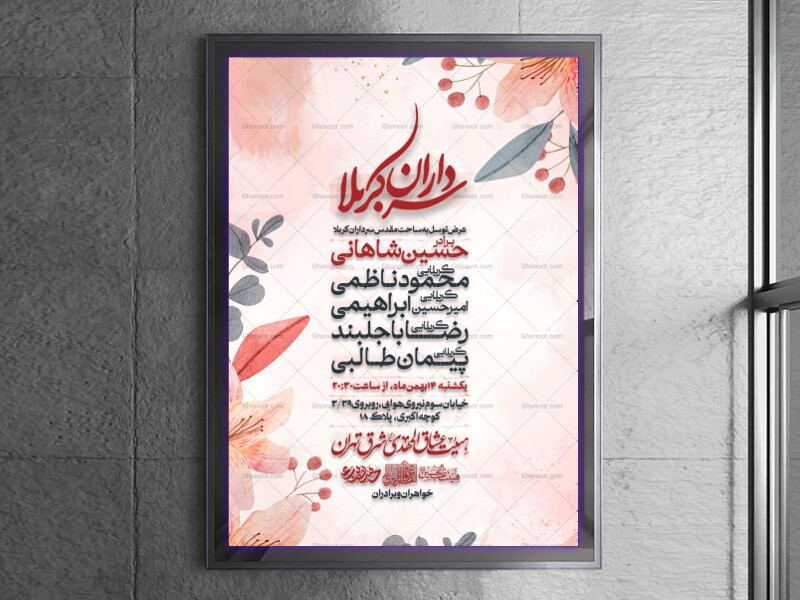 سرداران کربلا
عرض توسل به ساحت مقدس سرداران کربلا
برادر
حسین شاهانی
کربلایی
محمود ناظمی
کربلایی
امیرحسین ابراهیمی
کربلایی
رضا باباحلبند
کربلایی
پیمان طالبی
یکشنبه ۱۴ بهمن ماه، از ساعت ۲۰:۳۰
خیابان سوم نیروی هوایی، روبروی ۳/۳۹
کوچه اکبری، پلاک ۱۸
هیئت عشاق المهدی شرق تهران
خواهران و برادران
Ghonoot.com